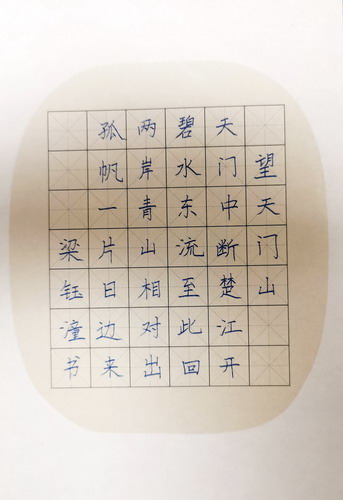 望天门山
天门中断楚江开
碧水东流至此回
两岸青山相对出
孤帆一片日边来
梁钰潼书